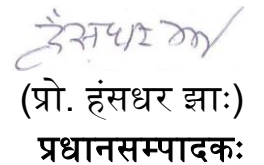 हंसधर झा
(प्रो. हंसधर झाः)
प्रधानसम्पादकः